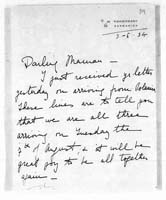 3-8-34
Darling Maman —
I just received yr letter
yesterday on arriving from
These lines are to tell you
that we are all three
arriving on Tuesday the
of August & it will be
great joy to be all together
again —